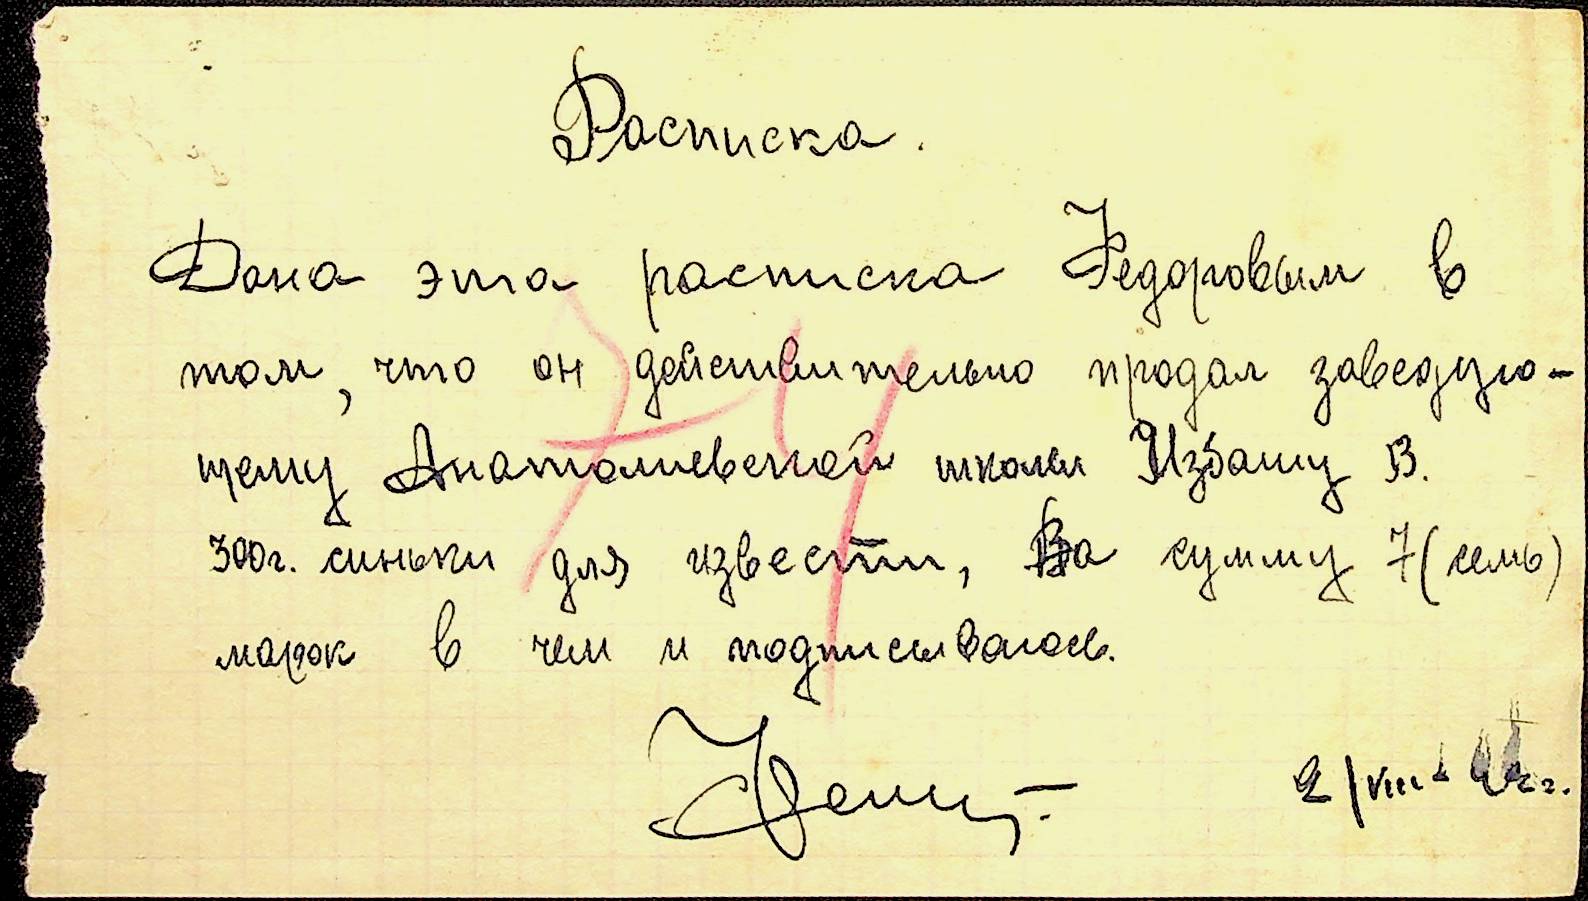 Расписка.
Дана эта расписка Федоровым в
том, что он действительно продал заведую-
щему Анатолиевской школы Избашу В.
300г. синьки для извести, на сумму 7 (семь)
марок в чем и подписываюсь.
2/VIII - 42г.
74